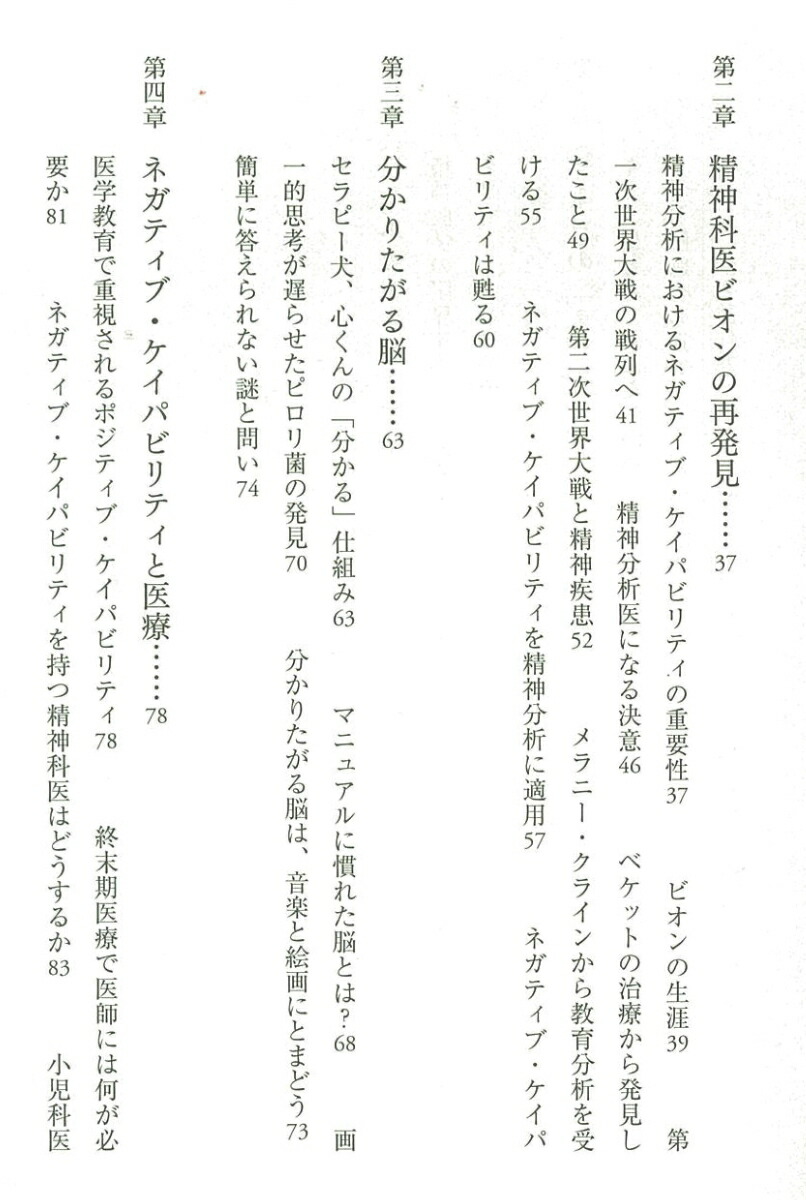 第二章　精神科医ビオンの再発見……37
精神分析におけるネガティブ・ケイパビリティの重要性37　ビオンの生涯39　第
一次世界大戦の戦列へ41　精神分析医になる決意46　ベケットの治療から発見し
たこと49　第二次世界大戦と精神疾患52　メラニー・クラインから教育分析を受
ける55　ネガティブ・ケイパビリティを精神分析に適用57　ネガティブ・ケイパ
ビリティは甦る60
第三章　分かりたがる脳……63
セラピー犬、心くんの「分かる」仕組み63　マニュアルに慣れた脳とは？68　画
一的思考が遅らせたピロリ菌の発見70　分かりたがる脳は、音楽と絵画にとまどう73
簡単に答えられない謎と問い74
第四章　ネガティブ・ケイパビリティと医療……78
医学教育で重視されるポジティブ・ケイパビリティ78　終末期医療で医師には何が必
要か81　ネガティブ・ケイパビリティを持つ精神科医はどうするか83　小児科医